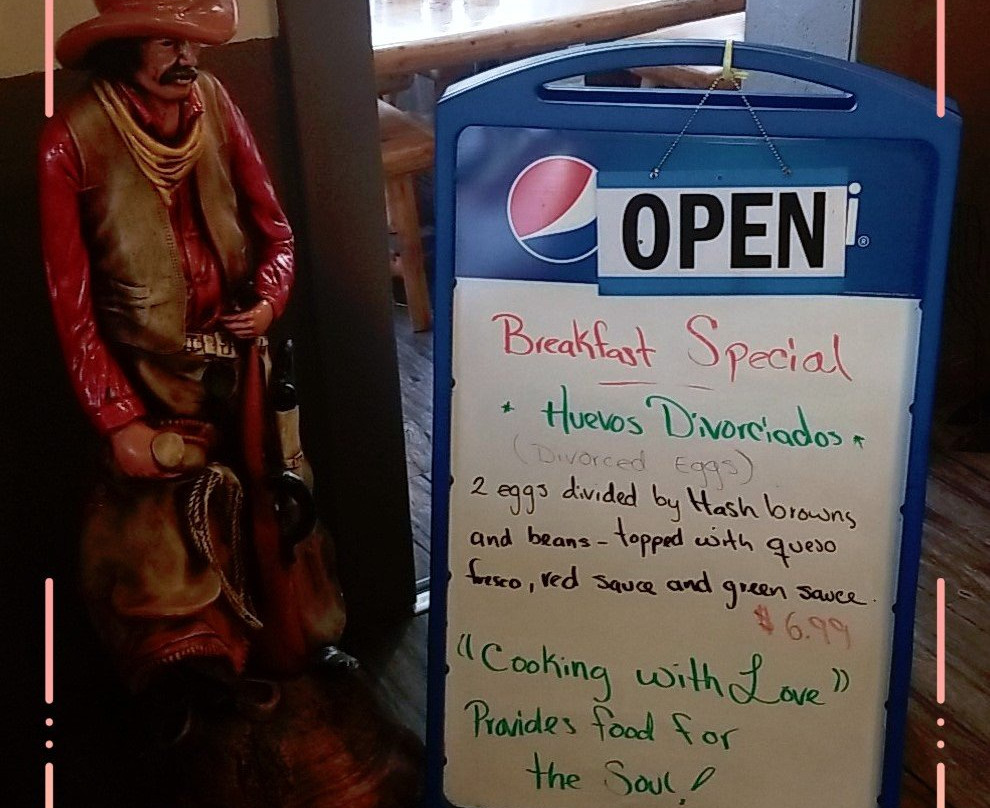 OPEN
i®
Breakfast Special
* Huevos Divorciados *
(Divorced Eggs)
2 eggs divided by Hash browns
and beans - topped with queso
fresco, red sauce and green sauce.
$6.99
"Cooking with Love"
Provides food for
the Soul!